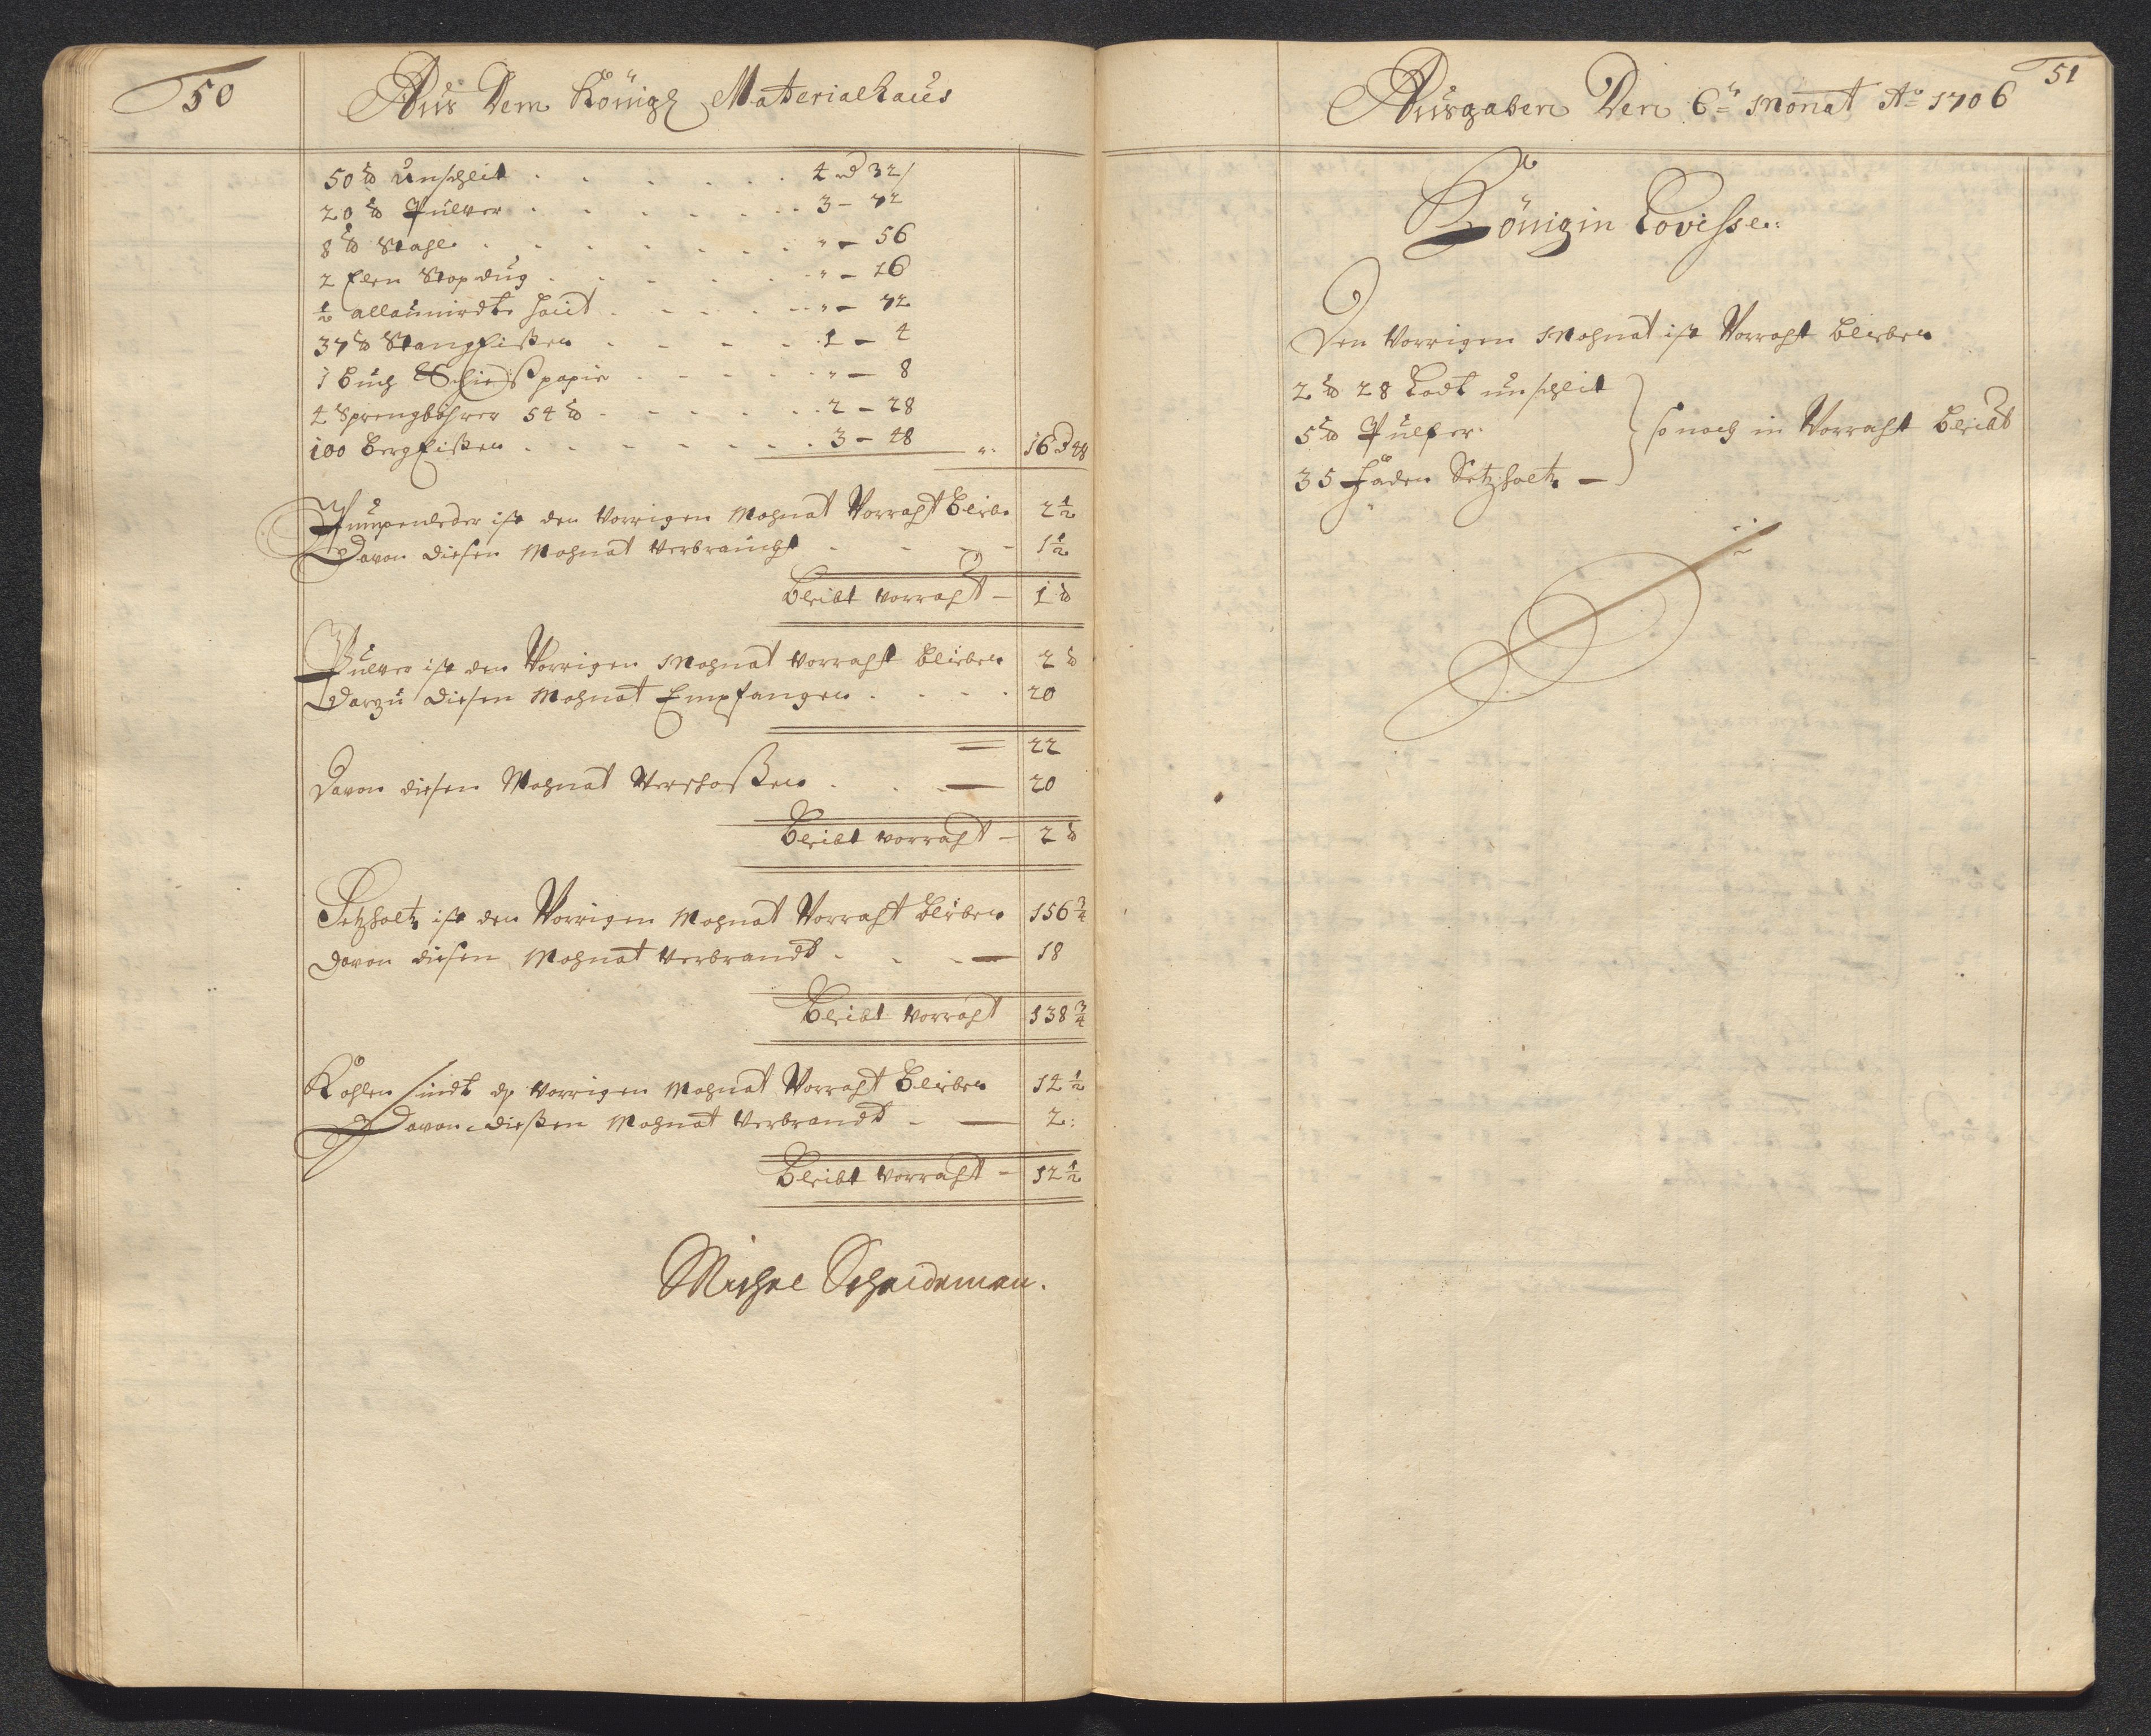 50
Aus Dem Königl Materialhaus
50 ℔ Unschleit . . . . . . 4 rd 32 /
20 ℔ Pulver . . . . . . 3 - 72
8 ℔ Stahl . . . . . . " - 56
2 Elen Stopdug . . . . . " - 16
½ allaunirdte Haut . . . . . " - 72
37 ℔ Stangeißen . . . . . 1 - 4
1 Buch Schießpapir . . . . . " - 8
4 Sprengböhrer 54 ℔ . . . . . 2 - 28
100 Bergeißen . . . . . . 3 - 48 " 16 rd 48
Pumpenleder ist den Vorrigen Mohnat Vorraht Blib. 2½
Davon diesen Mohnat Verbraucht . . - - 1½
Bleibt Vorraht - 1 ℔
Pulver ist den Vorrigen Mohnat Vorraht Blieben 2 ℔
Darzu diesen Mohnat Empfangen . . . . 20
— 22
Davon diesen Mohnat Verschoßen . . . — 20
Bleibt Vorraht - 2 ℔
Setzholtz ist den Vorrigen Mohnat Vorraht Blieben 156¾
Davon diesen Mohnat Verbrandt . . . — 18
Bleibt Vorraht 138¾
Kohlen sindt d. Vorrigen Mohnat Vorraht Blieben 14½
Davon dießen Mohnat Verbrandt - — 2:
Bleibt Vorraht - 12½
Michel Scheideman.
51
Ausgaben Den 6n Monat Ao 1706
Königin Lovisse:
Den Vorrigen Mohnat ist Vorraht Blieben
2 ℔ 28 Lodt Unschleit
5 ℔ Pulfer. } so noch in Vorraht Bleibt
35 Faden Setzholtz —